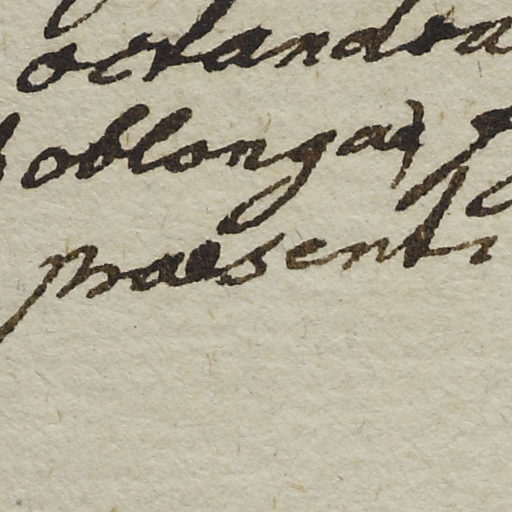 octandra
oblongas
praesenti